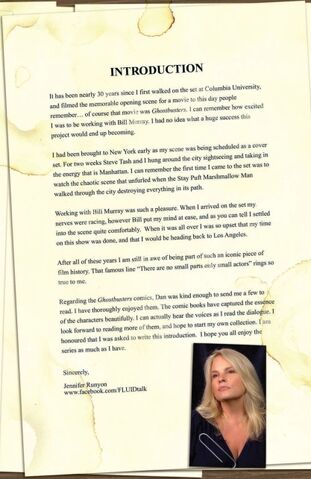 INTRODUCTION
It has been nearly 30 years since I first walked on the set at Columbia University,
and filmed the memorable opening scene for a movie to this day people
remember… of course that movie was Ghostbusters. I can remember how excited
I was to be working with Bill Murray. I had no idea what a huge success this
project would end up becoming.
I had been brought to New York early as my scene was being scheduled as a cover
set. For two weeks Steve Tash and I hung around the city sightseeing and taking in
the energy that is Manhattan. I can remember the first time I came to the set was to
watch the chaotic scene that unfurled when the Stay Puft Marshmallow Man
walked through the city destroying everything in its path.
Working with Bill Murray was such a pleasure. When I arrived on the set my
nerves were racing, however Bill put my mind at ease, and as you can tell I settled
into the scene quite comfortably. When it was all over I was so upset that my time
on this show was done, and that I would be heading back to Los Angeles.
After all of these years I am still in awe of being part of such an iconic piece of
film history. That famous line "There are no small parts only small actors" rings so
true to me.
Regarding the Ghostbusters comics, Dan was kind enough to send me a few to
read. I have thoroughly enjoyed them. The comic books have captured the essence
of the characters beautifully. I can actually hear the voices as I read the dialogue. I
look forward to reading more of them, and hope to start my own collection. I am
honoured that I was asked to write this introduction. I hope you all enjoy the
series as much as I have.
Sincerely,
Jennifer Runyon
www.facebook.com/FLUIDtalk